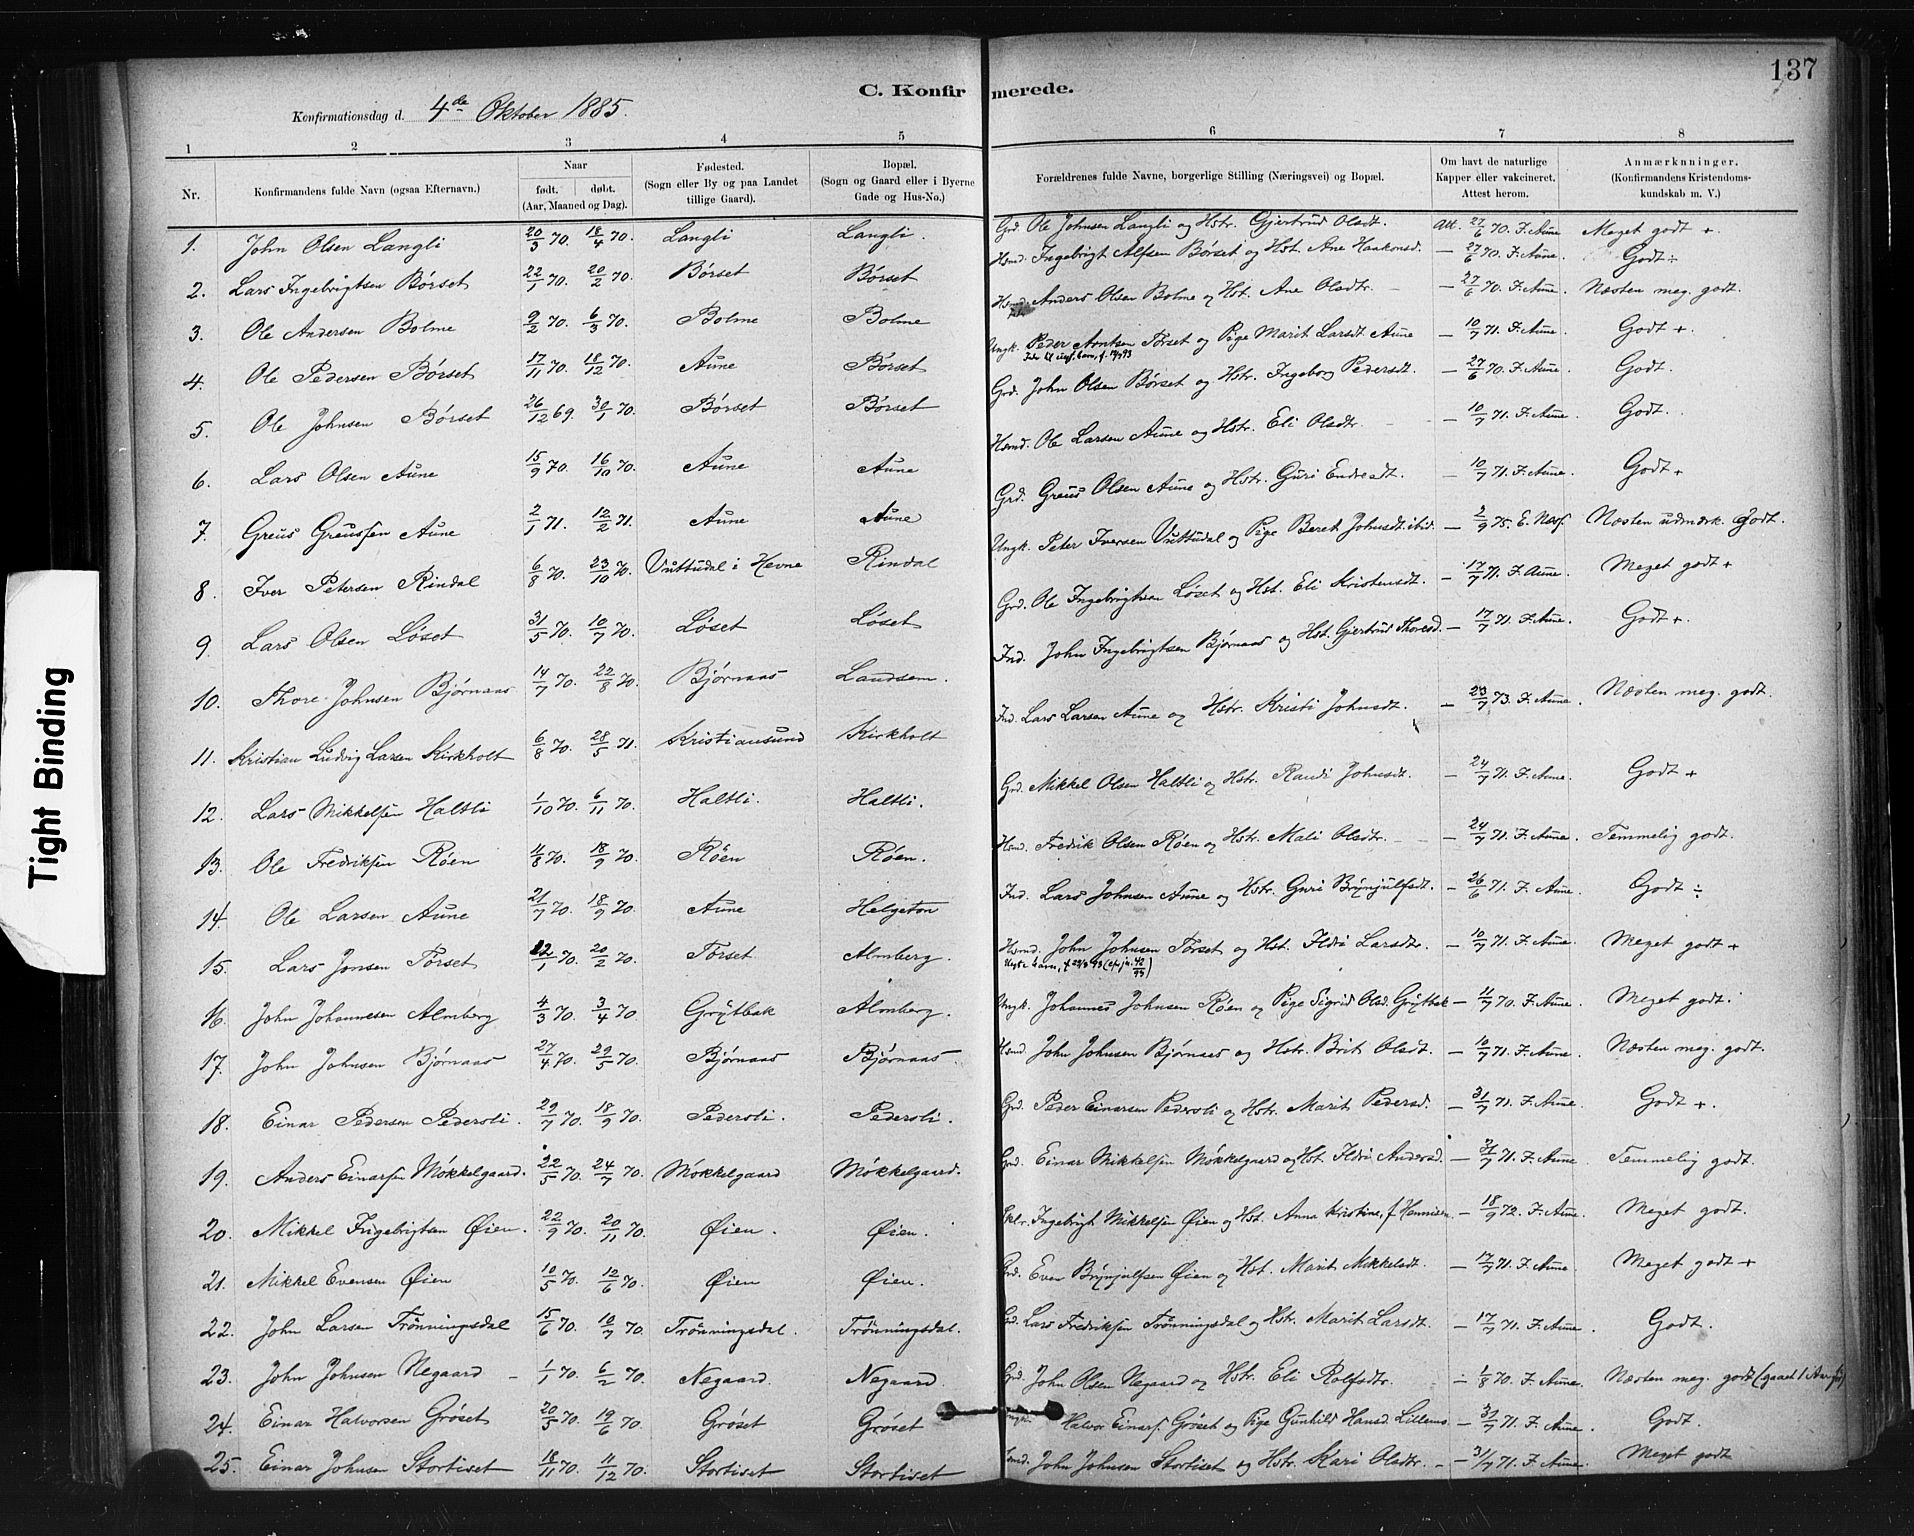 137
C. Konfirmerede.
Konfirmationsdag d. 4de Oktober 1885.
1 2 3 4 5 6 7 8
Nr. Konfirmandens fulde Navn (ogsaa Efternavn.) Naar født. døbt. (Aar, Maaned og Dag). Fødested. (Sogn eller By og paa Landet tillige Gaard). Bopæl. (Sogn og Gaard eller i Byerne Gade og Hus-No.) Forældrenes fulde Navne, borgerlige Stilling (Næringsvei) og Bopæl. Om havt de naturlige Kopper eller vakcineret. Attest herom. Anmærkninger. (Konfirmandens Kristendomskundskab m. V.)
1. John Olsen Langli 20/3 70. 18/4 70. Langli Langli. Grd. Ole Johnsen Langli og Hstr. Gjertrud Olsdt. Att. 27/6 70. F. Aune Meget godt +.
2. Lars Ingebrigtsen Børset 22/1 70. 20/2 70. Børset Børset Hsmd. Ingebrigt Alfsen Børset og Hst. Ane Haakonsd. — 27/6 70. F. Aune. Godt ÷
3. Ole Andersen Bolme 9/2 70. 6/3 70. Bolme Bolme Hsmd. Anders Olsen Bolme og Hst. Ane Olsdtr. — 27/6 70. F. Aune. Næsten meg. godt.
4. Ole Pedersen Børset 17/11 70. 18/12 70. Aune Børset Ungk. Peder Arntsen Tørset og Pige Marit Larsdt Aune — 10/7 71. F. Aune. Godt +.
5. Ole Johnsen Børset 26/12 69. 30/1 70. Børset Børset Grd. John Olsen Børset og Hstr. Ingeborg Pedersdt. — 27/6 70. F. Aune. Godt.
6. Lars Olsen Aune 15/9 70. 16/10 70. Aune Aune Hsmd. Ole Larsen Aune og Hstr. Eli Olsdtr. — 10/7 71. F. Aune. Godt.
7. Greus Greussen Aune 2/1 71. 12/2 71. Aune Aune Grd. Greus Olsen Aune og Hstr. Guri Endresdt. — 10/7 71. F. Aune. Godt +
8. Iver Petersen Rindal 6/8 70. 23/10 70. Vuttudal i Hevne Rindal Ungk. Peter Iversen Vuttudal og Pige Beret Johnsdt. ibid. — 2/9 75. E. Næsten udmærk. godt.
9. Lars Olsen Løset 31/5 70. 10/7 70. Løset Løset Grd. Ole Ingebrigtsen Løset og Hst. Eli Kristensdt. — 17/7 71. F. Aune. Meget godt +
10. Thore Johnsen Bjørnaas 14/7 70. 22/8 70. Bjørnaas Landsem. Ind. John Ingebrigtsen Bjørnaas og Hst. Gjertrud Thoresd. — 17/7 71. F. Aune. Godt +.
11. Kristian Ludvig Larsen Kirkholt 6/8 70. 28/5 71. Kristiansund Kirkholt Ind. Lars Larsen Aune og Hstr. Kristi Johnsdt. — 23/7 73. F. Aune. Næsten meg. godt.
12. Lars Mikkelsen Haltli 1/10 70. 6/11 70. Haltli. Haltli. Grd. Mikkel Olsen Haltli og Hstr. Randi Johnsdt. — 24/7 71. F. Aune. Godt +
13. Ole Fredriksen Røen 4/8 70. 18/9 70. Røen Røen. Hsmd. Fredrik Olsen Røen og Hstr. Mali Olsdtr. — 24/7 71. F. Aune. Temmelig godt.
14. Ole Larsen Aune 21/7 70. 18/9 70. Aune Helgeton Ind. Lars Johnsen Aune og Hstr. Guri Brynjulfsdt. — 26/6 71. F. Aune. Godt ÷
15. Lars Jonsen Tørset 22/1 70. 20/2 70. Tørset Almberg. Hsmd. John Johnsen Tørset og Hst. Ildri Larsdtr. — 10/7 71. F. Aune. Meget godt +
16. John Johannesen Almberg 4/3 70. 3/4 70. Grytbak Almberg. Ungk. Johannes Johnsen Røen og Pige Sigrid Olsd. Grytbak — 11/7 70. F. Aune Meget godt.
17. John Johnsen Bjørnaas 27/4 70. 29/5 70. Bjørnaas Bjørnaas Hsmd John Johnsen Bjørnaas og Hstr. Brit Olsdt. — 10/7 71. F. Aune. Næsten meg. godt.
18. Einar Pedersen Pedersli. 29/7 70. 18/9 70. Pedersli. Pedersli. Grd. Peder Einarsen Pedersli og Hstr. Marit Pedersd. — 31/7 71. F. Aune Godt +.
19. Anders Einarsen Møkkelgaard. 22/5 70. 24/7 70. Møkkelgaard Møkkelgaard. Grd. Einar Mikkelsen Møkkelgaard og Hst. Ildri Andersd. — 31/7 71. F. Aune Temmelig godt.
20. Mikkel Ingebrigtsen Øien. 22/9 70. 20/11 70. Øien. Øien. Ingebrigt Mikkelsen Øien og Hst. Anna Kristine, f. — 18/9 72. F. Aune. Meget godt.
21. Mikkel Evensen Øien 10/5 70. 12/6 70. Øien Øien. Grd. Even Brynjulfsen Øien og Hst. Marit Mikkelsdt. — 17/7 71. F. Aune. Meget godt +
22. John Larsen Trønningsdal 15/6 70. 10/7 70. Trønningsdal. Trønningsdal. Grd. Lars Fredriksen Trønningsdal og Hstr. Marit Larsdt. — 17/7 71. F. Aune. Godt.
23. John Johnsen Negaard 1/1 70. 6/2 70. Negaard. Negaard. Grd. John Olsen Negaard og Hstr. Eli Rolfsdtr. — 1/8 70. F. Aune. Næsten meg. godt
24. Einar Halvorsen Grøset 20/5 70. 19/6 70. Grøset Grøset Halvor Einars. Grøset og Pige Gunhild Hansd. — 31/7 71. F. Aune. Godt.
25. Einar Johnsen Stortiset 18/11 70. 11/12 70. Stortiset Stortiset John Johnsen Stortiset og Hstr. Kari Olsdtr. — 31/7 71. F. Aune. Meget godt
Tight Binding